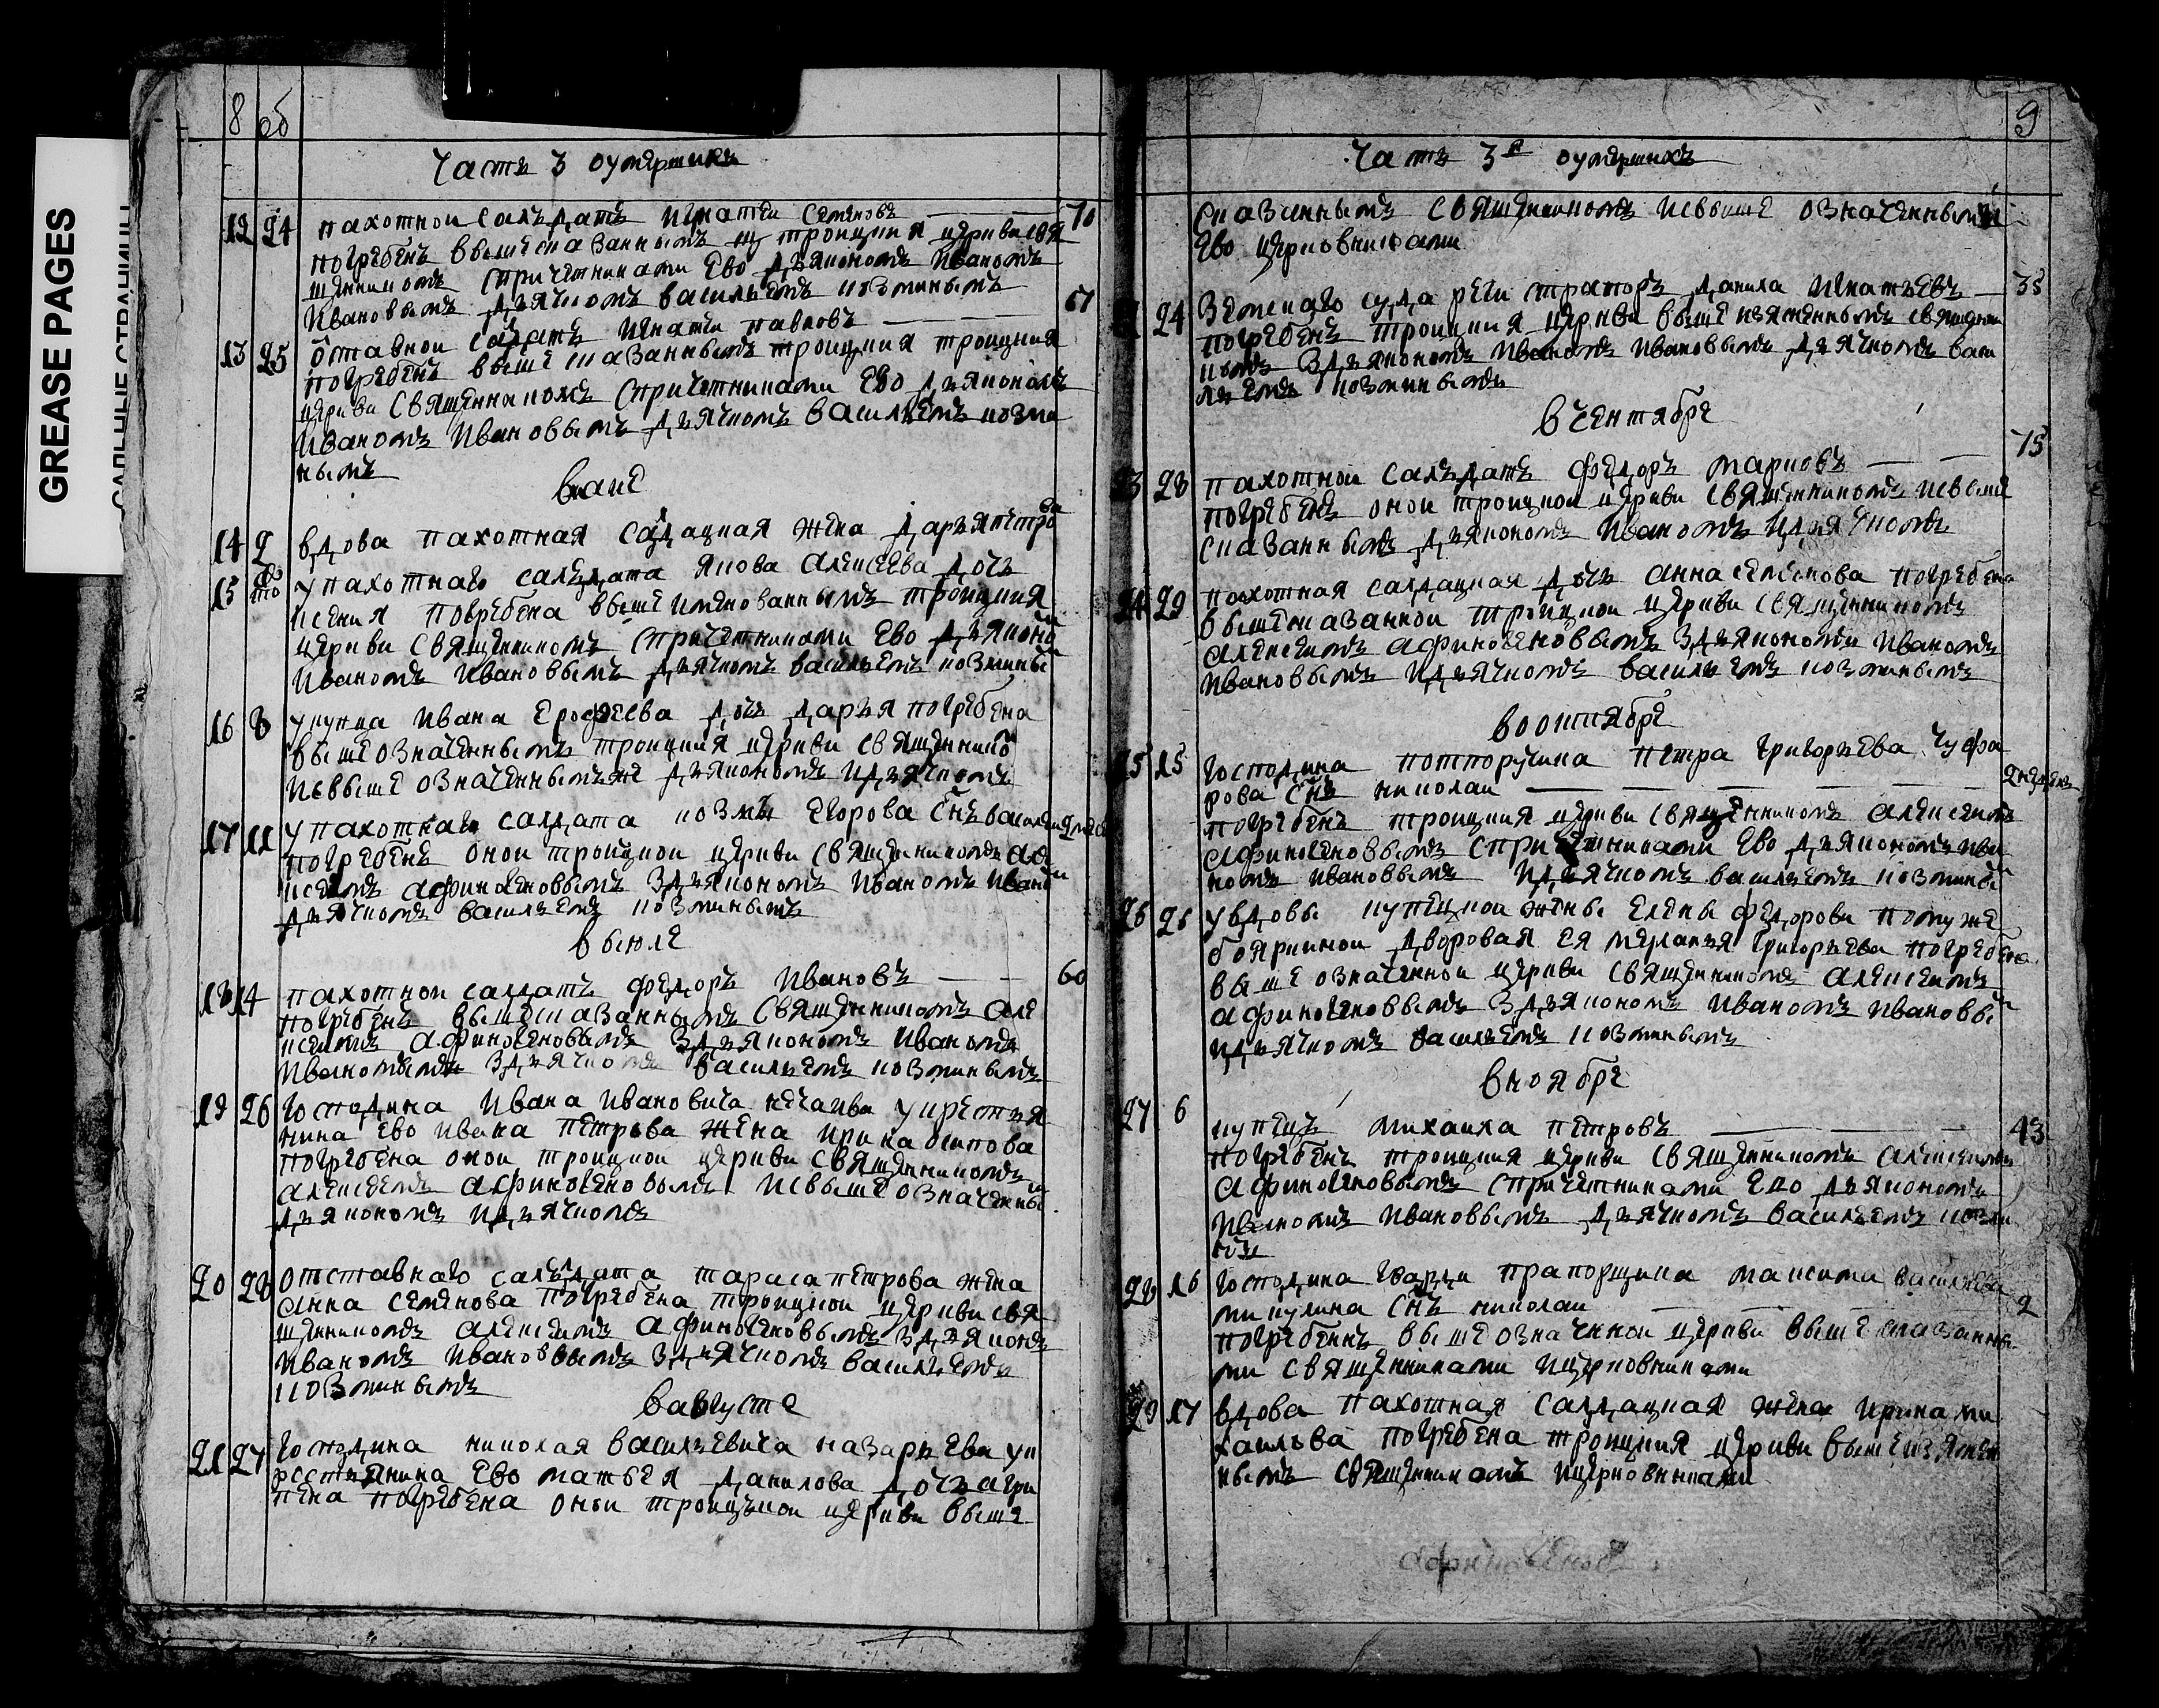 GREASE PAGES
8 об
Часть 3 оумершихъ
12 24 пахотнои салъдатъ Игнатеи Семеновъ 70
погребенъ вышесказаннымъ троицкия церкви свя
щенникомъ спричетниками ево дьякономъ Иваномъ
Ивановымъ дьячкомъ васильемъ козминымъ
13 25 отставнои салдатъ Игнатеи павловъ 67
погребенъ выше сказаннымъ троицкия троицкия
церкви священникомъ спричетниками Ево дьякономъ
Иваномъ Ивановымъ дьячкомъ васильемъ козми
нымъ
14 2 вдова пахотная салдацкая жена дарья петрова
15 то у пахотнаго салъдата якова алексеева дочь
ксения погребена выше имянованнымъ троицкия
церкви священникомъ спричетниками Ево дьяконо
Иваномъ Ивановымъ дьячкомъ васильемъ козмины
16 8 укупца Ивана Ерофеева дочь дарья погребена
выше означеннымъ троицкия церкви священнико
исвыше означеннымъже дьякономъ идьячкомъ
17 11 упахотнаго салдата козмы Егорова снъ василеи
погребенъ онои троицкои церкви священникомъ але
ксеемъ афиногеновымъ здьякономъ Иваномъ Ивано
дьячкомъ васильемъ козминымъ
в июле
18 14 пахотнои салдатъ федоръ Ивановъ 60
погребенъ вышесказаннымъ священникомъ але
ксеемъ афиногеновымъ здьякономъ Иваномъ
Ивановымъ здьячкомъ васильемъ козминымъ
19 26 господина Ивана Ивановича нечаива укрестья
нина ево ивана петрова жена ирина осипова
погребена онои троицкои церкви священникомъ
алексеемъ афиногеновымъ исвыше означенны
дьякономъ идьячкомъ
20 28 отставнаго салъдата тараса петрова жена
анна семенова погребена троицкои церкви свя
щенникомъ алексеемъ афиногеновымъ здьякономъ
Иваномъ Ивановымъ здьячкомъ васильемъ
козминымъ
в августе
21 27 господина николая васильевича назарьева ук
рестьянина ево матвея данилова дочь агри
пена погребена онои троицъкои церкви выше
9
Часть 3я оумершихъ
сказаннымъ священникомъ исвыше означенными
Ево церковниками
24 земскаго суда регистраторъ данила Игнатьевъ 35
погребенъ троицкия церкви выше изясненнымъ священни
комъ здьякономъ Иваномъ Ивановымъ дьячкомъ васи
льемъ козминымъ
в сентябре
23 28 пахотнои салъдатъ федоръ марковъ 75
погребенъ онои троицкои церкви священникомъ исвыше
сказаннымъ дьякономъ Иваномъ идьячкомъ
24 29 пахотная салдацкая дочь анна семенова погребена
вышесказаннои троицкои церкви священникомъ
алексеемъ афиногеновымъ здьякономъ Иваномъ
Ивановымъ идьячкомъ васильемъ козминымъ
во октябре
25 15 господина потпоручика петра григорьева чуфа
рова снъ николаи 2 недель
погребенъ троицкия церкви священникомъ алексеемъ
афиногеновымъ спричетниками Ево дьякономъ ива
номъ ивановымъ идьячкомъ васильемъ козмины
26 26 увдовы купецкои жены Елены федорови помуже
бояркинои дворовая ея меланья григорьева погребена
выше означеннои церкви священникомъ алексеемъ
афиногеновымъ здьякономъ Иваномъ Ивановы
идьячкомъ васильемъ козминымъ
в ноябре
27 6 купецъ михаила петровъ 43
погребенъ троицкия церкви священникомъ алексеемъ
афиногеновымъ спричетниками Ево дьякономъ
Иваномъ Ивановымъ дьячкомъ васильемъ козми
28 16 господина гвардии прапорщика максима васильева
микулина снъ николаи 2
погребенъ выше означинои церкви выше сказанны
ми священниками ицерковниками
29 17 вдова пахотная салдацкая жена ирина ми
хаилова погребена троицкия церкви выше изяснен
нымъ священникомъ ицерковниками